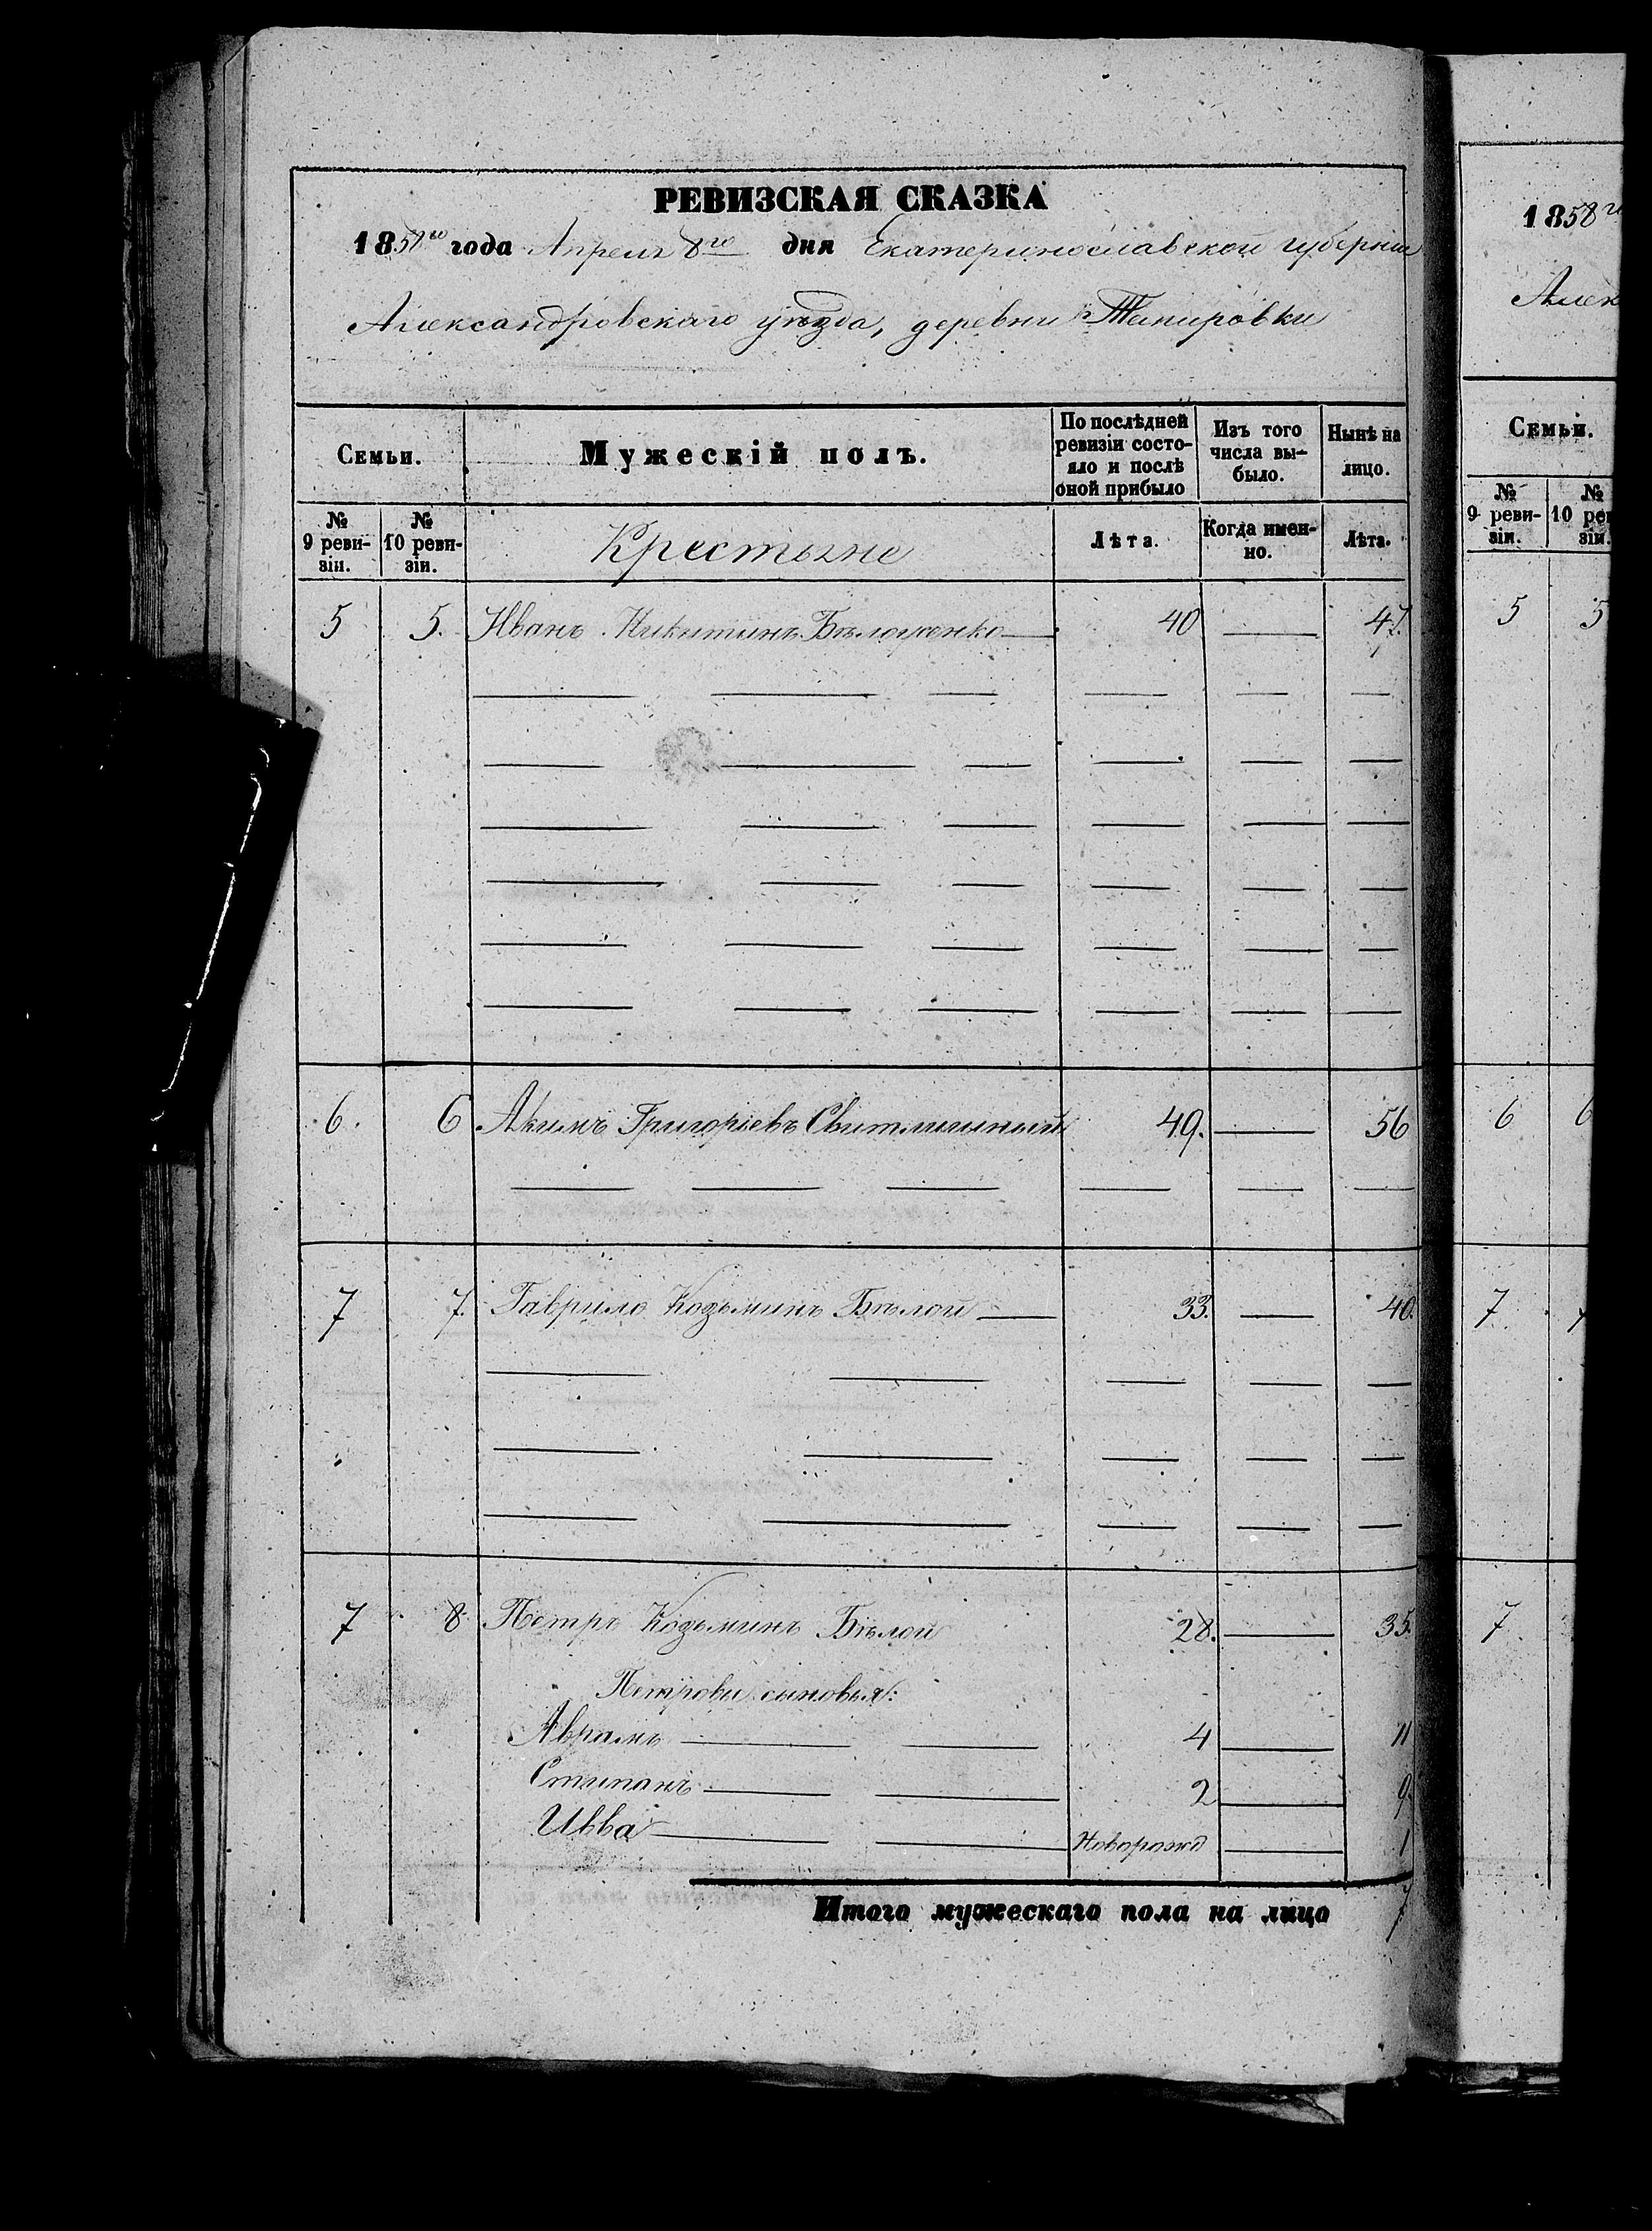 РЕВИЗСКАЯ СКАЗКА
1858го года Апреля 8го дня Екатеринославской губернии
Александровского уѣзда, деревни
Семьи.
Мужескій полъ.
По послѣдней ревизіи состояло и послѣ оной прибыло
Изъ того числа вы-было.
Нынѣ на лицо.
№ 9 реви-зіи.
№ 10 реви-зіи.
Крестьяне
Лѣта.
Когда имен-но.
Лѣта.
5 5. Иванъ Никитинъ Бѣлоуженко 40 — 47.
6. 6 Акимъ Григоріевъ Свитличный 49. — 56
7 7. Гаврило Козьминъ Бѣлой — 33. — 40.
7 8 Петръ Козьминъ Бѣлой 28. — 35.
Петровы сыновья:
Аврамъ — 4 — 11
Степанъ — 2 — 9.
Ивва — Новорожд — 1
Итого мужескаго пола на лицо 7
1858го
Алек
Семьи.
№ 9 реви-зіи.
№ 10 ре зіи.
5 5
6 6
7 7
7